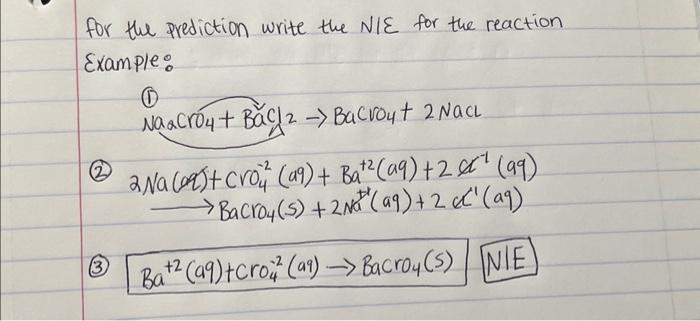 for the prediction write the NIE for the reaction
Example:
①
Na2CrO4 + BaCl2 → BaCrO4 + 2 NaCl
② 2Na(aq) + CrO4⁻²(aq) + Ba⁺²(aq) + 2 Cl⁻¹(aq)
→ BaCrO4(s) + 2Na⁺¹(aq) + 2 Cl⁻¹(aq)
③ Ba⁺²(aq) + CrO4⁻²(aq) → BaCrO4(s) NIE